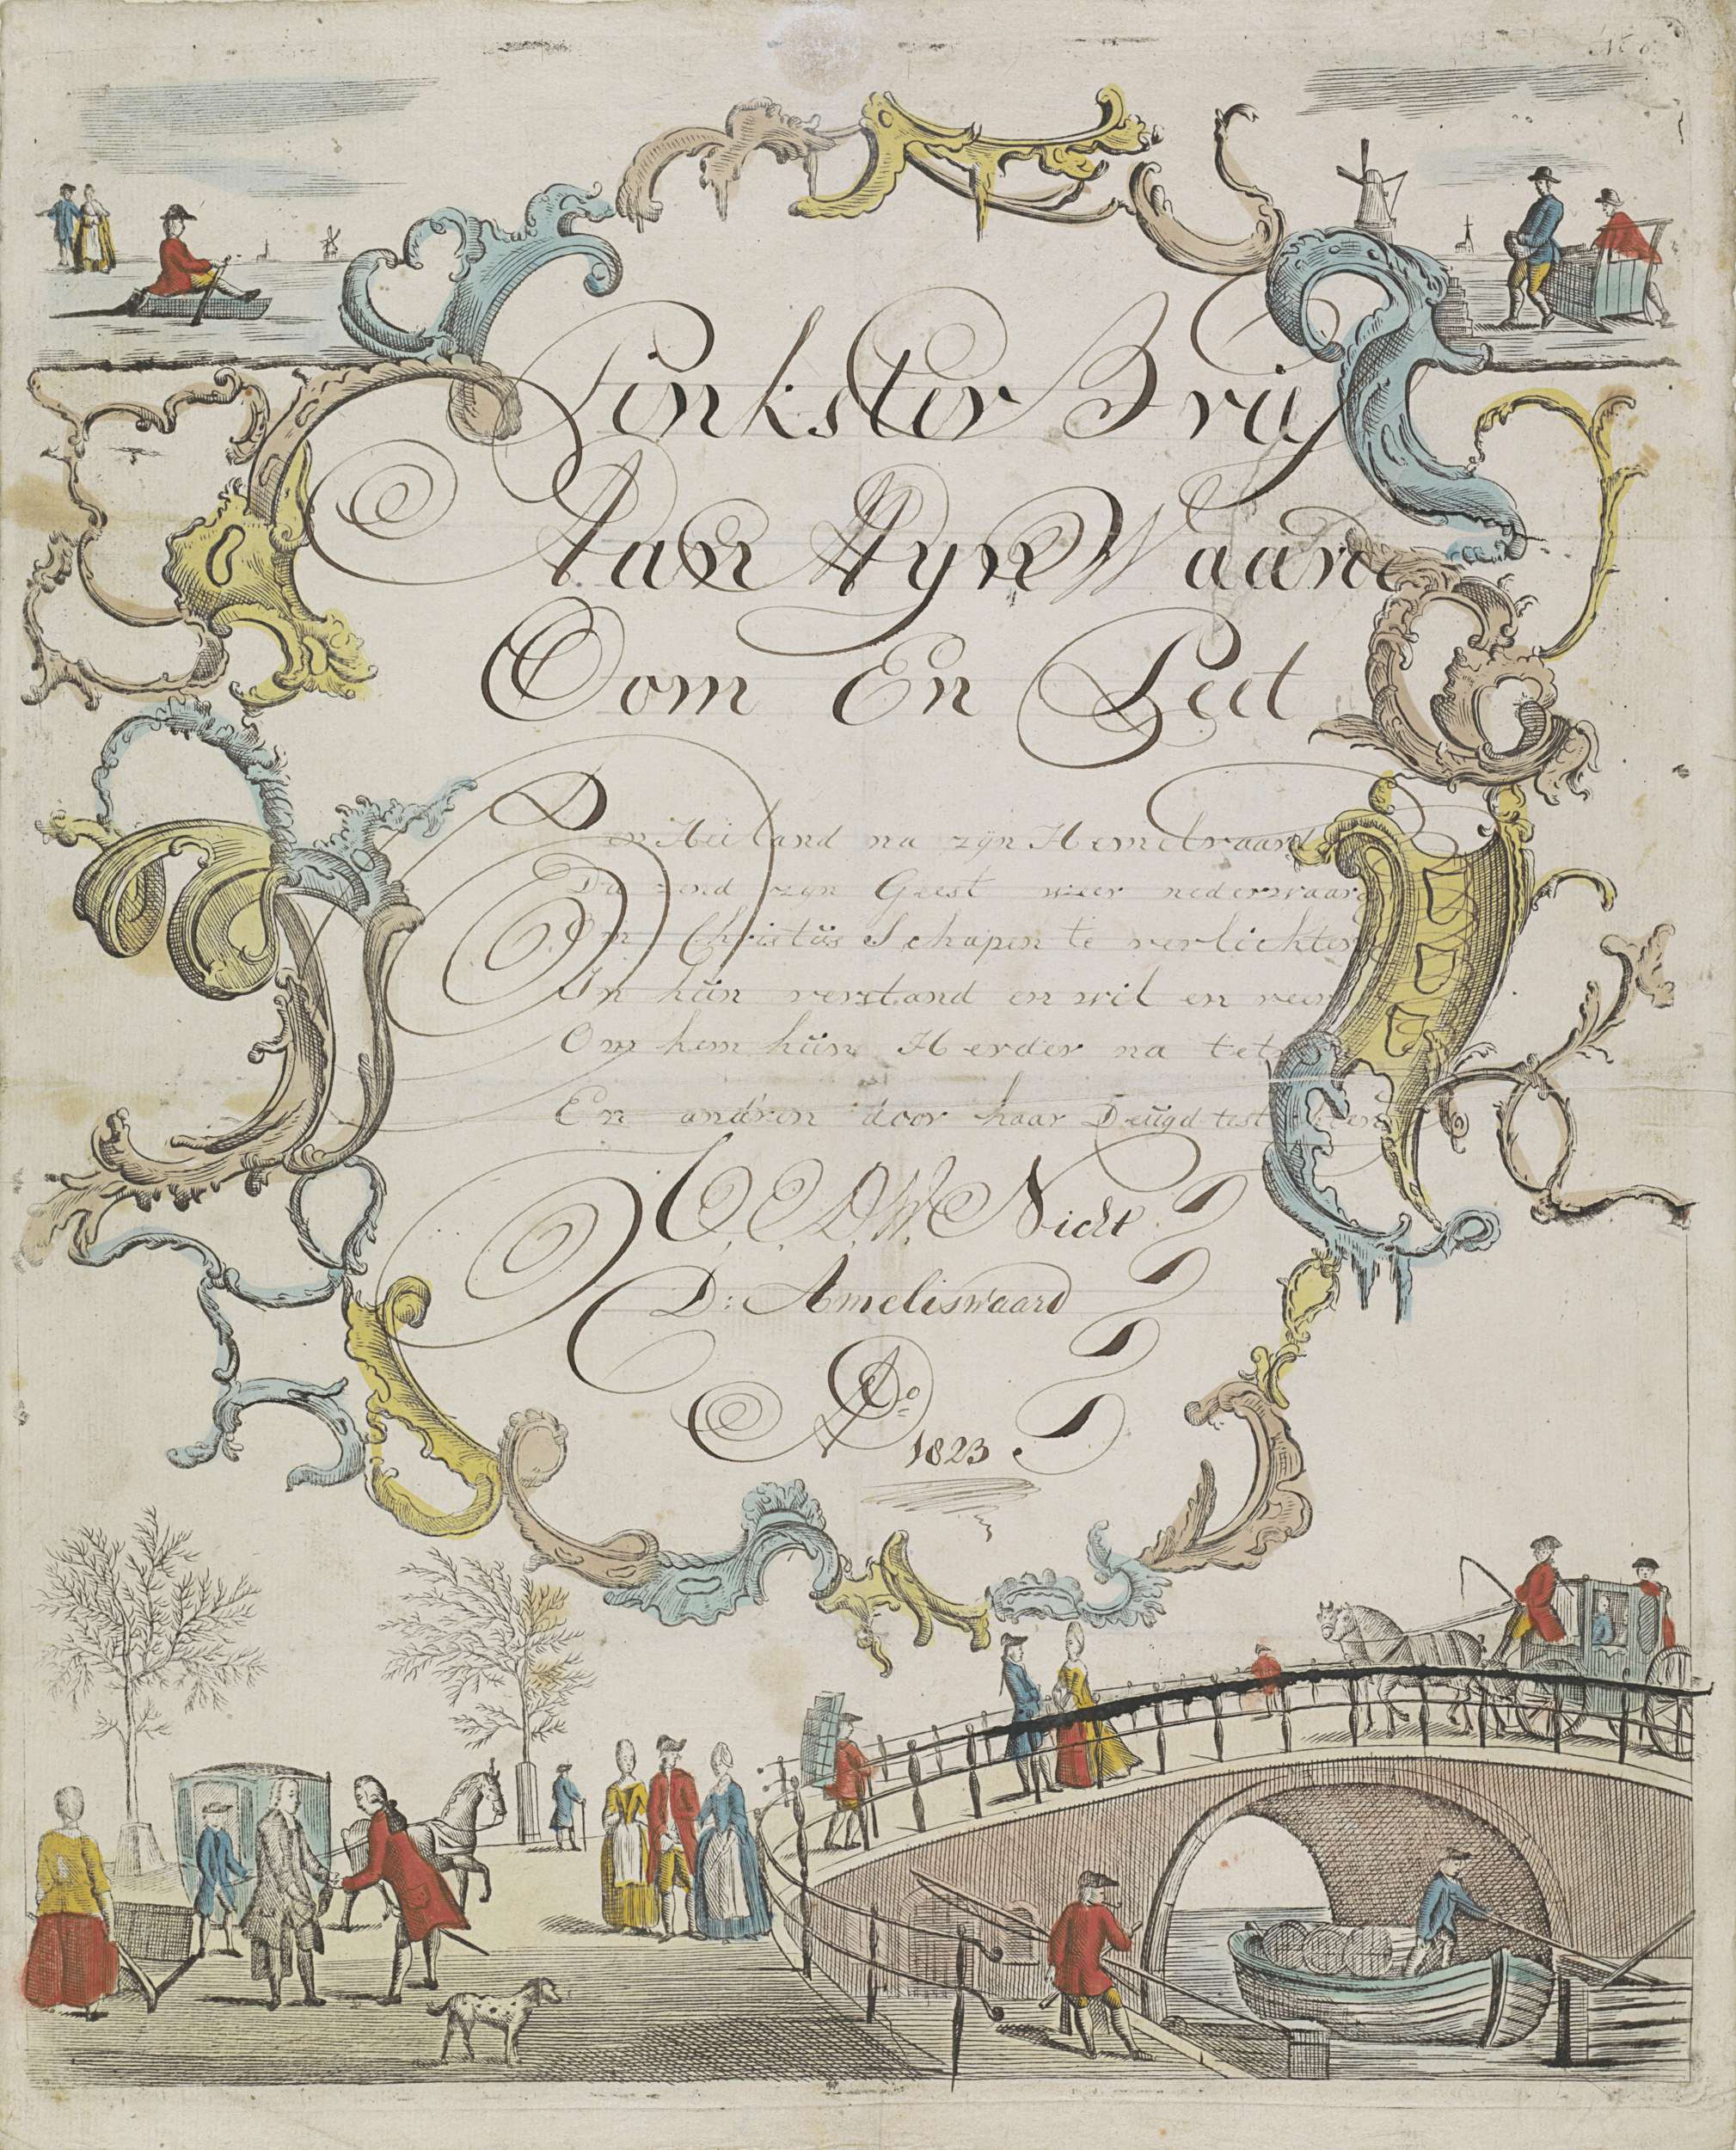 No 6
Pinkster Brief
Aan Myn Waarde
Oom En Peet
Den Heiland na zijn Hemelvaard
Die zend zyn Geest weer nederwaard
Om Christüs Schapen te verlichten
In hün verstand en wil en
Om hem hün Herder na
En and'ren door haar Deügd
U, E, D, W, Nicht
D: Ameliswaard
Ao
1823